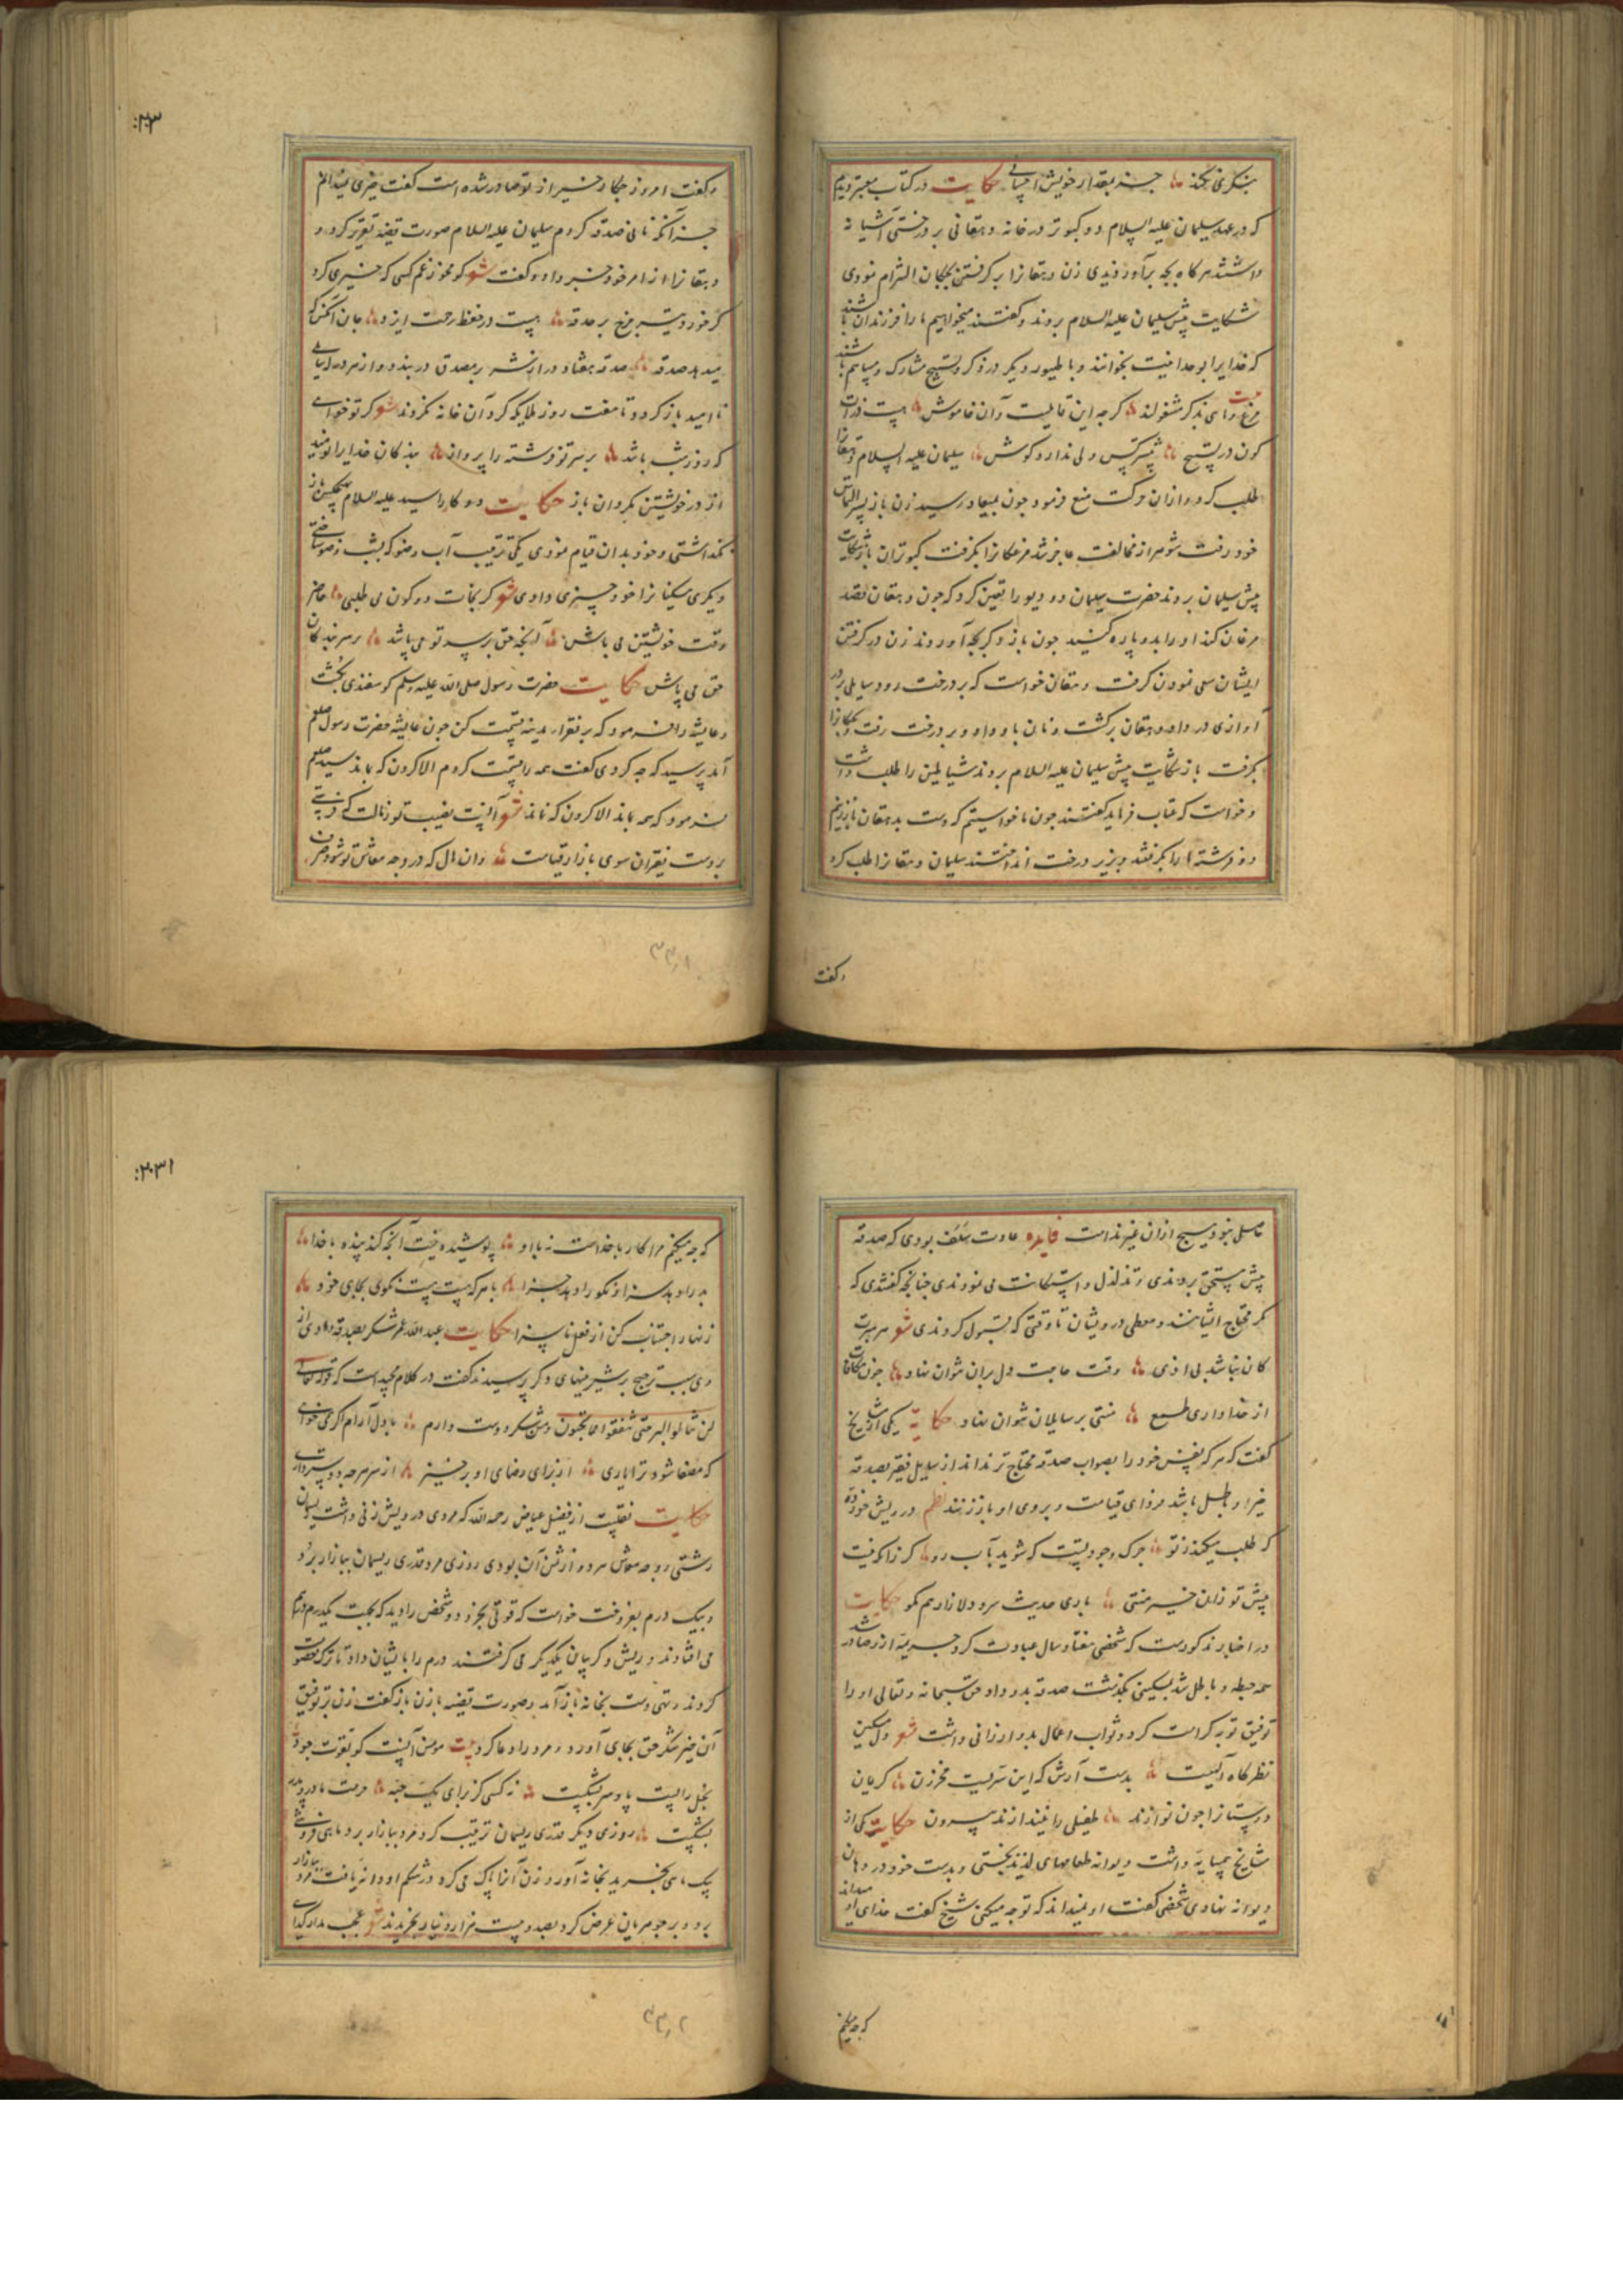 بنکرمی نکند جز بمقدار خویش احسانی حکایت در کتاب معتبر دیدم
که در عهد سلیمان علیه السلام دو کبوتر در خانه دهقانی بر درختی آشیانه
داشتند هرکاه بچه برآوردندی زن دهقانرا بر کرفتن بچکان التزام نمودی
شکایت پیش سلیمان علیه السلام بردند و کفتند میخواهیم ما را فرزندان باشند
که خدایرا بوحدانیت بخوانند و با طیور دیکر در ذکر و تسبیح مشارک و مساهم باشند
کون در تسبیح ولی ندارد کوش سلیمان علیه السلام دهقانرا
طلب کرد و ازان حرکت منع فرمود چون بمیعاد رسید زن باز بسر التماس
خود رفت شوهر از مخالفت عاجز شد مرغکانرا بکرفت کبوتران باز بشکایت
پیش سلیمان بردند حضرت سلیمان دو دیو را تعین کرد که چون دهقان قصد
مرغان کند او را بدو پاره کنید چون باز دکر بچه آوردند زن در کرفتن
ایشان سعی نمودن کرفت دهقان خواست که بر درخت رود سایلی بر در
آوازی در داد دهقان برکشت و نان باو داد و بر درخت رفت و بچکانرا
بکرفت باز شکایت پیش سلیمان علیه السلام بردند شیاطین را طلب داشت
و خواست که عتاب فرماید کفتند چون ما خواستیم که دست بدهقان باز زنیم
دو فرشته ما را بکرفتند و بزیر درخت انداختند سلیمان دهقانرا طلب کرد
وکفت
۲۳۰
وکفت امروز چکار خیر از تو صادر شده است کفت چیزی نمیدانم
جز آنکه نانی صدقه کردم سلیمان علیه السلام صورت قضیه تقریر کرد و
دهقانرا از امر خود خبر داد و کفت شعر کو مخور غم کسی که خیری کرد
کر خورد تیر چرخ بر حدقه هست در حفظ رحمت ایزد جان آنکس که
میدهد صدقه صدقه هفتاد در از شر بمصدق در بندد و از هر در ایمانی
نا امید باز کردد تا هفت روز ملایکه کرد آن خانه نکردند شعر کر تو خواهی
که روز شب باشد بر سر تو فرشته را پرواز بندکان خدایرا نومید
از در خویشتن مکردان باز حکایت دو کار را سید علیه السلام بهیچکس باز
نکذاشتی و خود بدان قیام نمودی یکی ترتیب آب وضو که بشب وضو ساختی
دیکری مسکینانرا خود چیزی دادی شعر کر نجات دو کون می طلبی حاضر
وقت خویشتن می باش آنچه حق بر سر تو می پاشد بر سر بندکان
حق می پاش حکایت حضرت رسول صلی الله علیه وسلم کوسفندی بکشت
و عایشه را فرمود که بر فقراء مدینه قسمت کن چون عایشه حضرت رسول صلعم
آمد پرسید که چه کردی کفت همه را قسمت کردم الا کردن که بماند سید صلعم
فرمود که همه بماند الا کردن که نماند شعر آنست نصیب تو ز مالت که فرستی
بر دست فقیران سوی بازار قیامت وان مال که در وجه معاش تو شود صرف
۲۳۰۱
حاصلی نبود هیچ ازان غیر ندامت فایده عادت سلف بودی که صدقه
پیش مستحق بردندی و تذلل و استکانت می نمودندی چنانچه کفتندی که
مکر محتاج ایشانند و معطی درویشان تا وقتی که قبول کردندی شعر هر مبرت
کان نباشد بی اذی وقت حاجت دل بران نتوان نهاد چون مکافات
از خدا داری طمع منتی بر سایلان نتوان نهاد حکایة یکی از مشایخ
کفت که هر که بنفس خود را بصواب صدقه محتاج تر نداند از سایل فقیر بصدقه
خیر او باطل باشد فردای قیامت و بروی او باز زنند نظم درویش خود
که طلب میکند ز تو چرک وجود تست که شوید بآب رو کر زانکه نیست
پیش تو زان خیر منتی باری حدیث سرد دلازار هم مکو حکایت
در اخبار مذکورست که شخصی هفتاد سال عبادت کرد جریمهٔ از و صادر شد
همه حبطه و باطل شد بمسکینی بکذشت صدقه بدو داد حق سبحانه و تعالی او را
توفیق توبه کرامت کرد و ثواب اعمال بدو ارزانی داشت شعر دل مسکین
نظرکاه آلهیست بدست آرش که این سریست مخزون کریمان
دوستانرا چون نوازند طفیلی را نیندازند بیرون حکایت یکی از
مشایخ همسایهٔ داشت دیوانه طعامهای لذیذ پختی و بدست خود در دهان
دیوانه نهادی شخصی کفت او نمیداند که تو چه میکنی شیخ کفت خدای او میداند
که چه میکنم
که چه میکنم مرا کار با خداست نه با او پوشیده نیست آنچه کند بنده با خدا
بد را و بد سزا و نکو را دهد جزا با هر که هست هست نکوئی بجای خود
زنهار اجتناب کن از فعل ناسزا حکایت عبد الله عمر شکر بصدقه دادی از
وی سبب ترجیح بر شیرینیهای دکر پرسیدند کفت در کلام مجید است که قوله تعالی
لن تنالوا البر حتی تنفقوا مما تحبون و من شکر دوست دارم با دل آرام اکر می خواهی
که مصفا شود ترا یاری از برای رضای او برخیز از سر هر چه دوستر داری
حکایت نقلست از فضیل عیاض رحمه الله که مردی درویش زنی داشت ریسمان
رشتی وجه معاش هر دو از ثمن آن بودی روزی مرد قدری ریسمان ببازار برد
و بیک درم بفروخت خواست که قوتی بخرد دو شخص را دید که بجهت یکدرم در هم
می افتادند و ریش و کریبان یکدیکر می کرفتند درم را بایشان داد تا ترک خصومت
کردند و تهی دست بخانه باز آمد و صورت قضیه با زن باز کفت زن بر توفیق
آن خیر شکر حق بجای آورد و مرد را دعا کرد بیت مومن آنست کو بقوت جود
بخل را پست پا و سر بشکست نه کسی کز برای یک حبه حرمت مادر و پدر
بشکست روزی دیکر قدری ریسمان ترتیب کرد مرد ببازار برد ماهی فروشی
یک ماهی بخرید بخانه آورد زن آنرا پاک می کرد در شکم او دردانه یافت مرد ببازار
برد و بر جوهریان عرض کرد بصد و بیست هزار دینار بخریدند شعر عجب مدار کدای
۲۳۱
۲۳۰۲